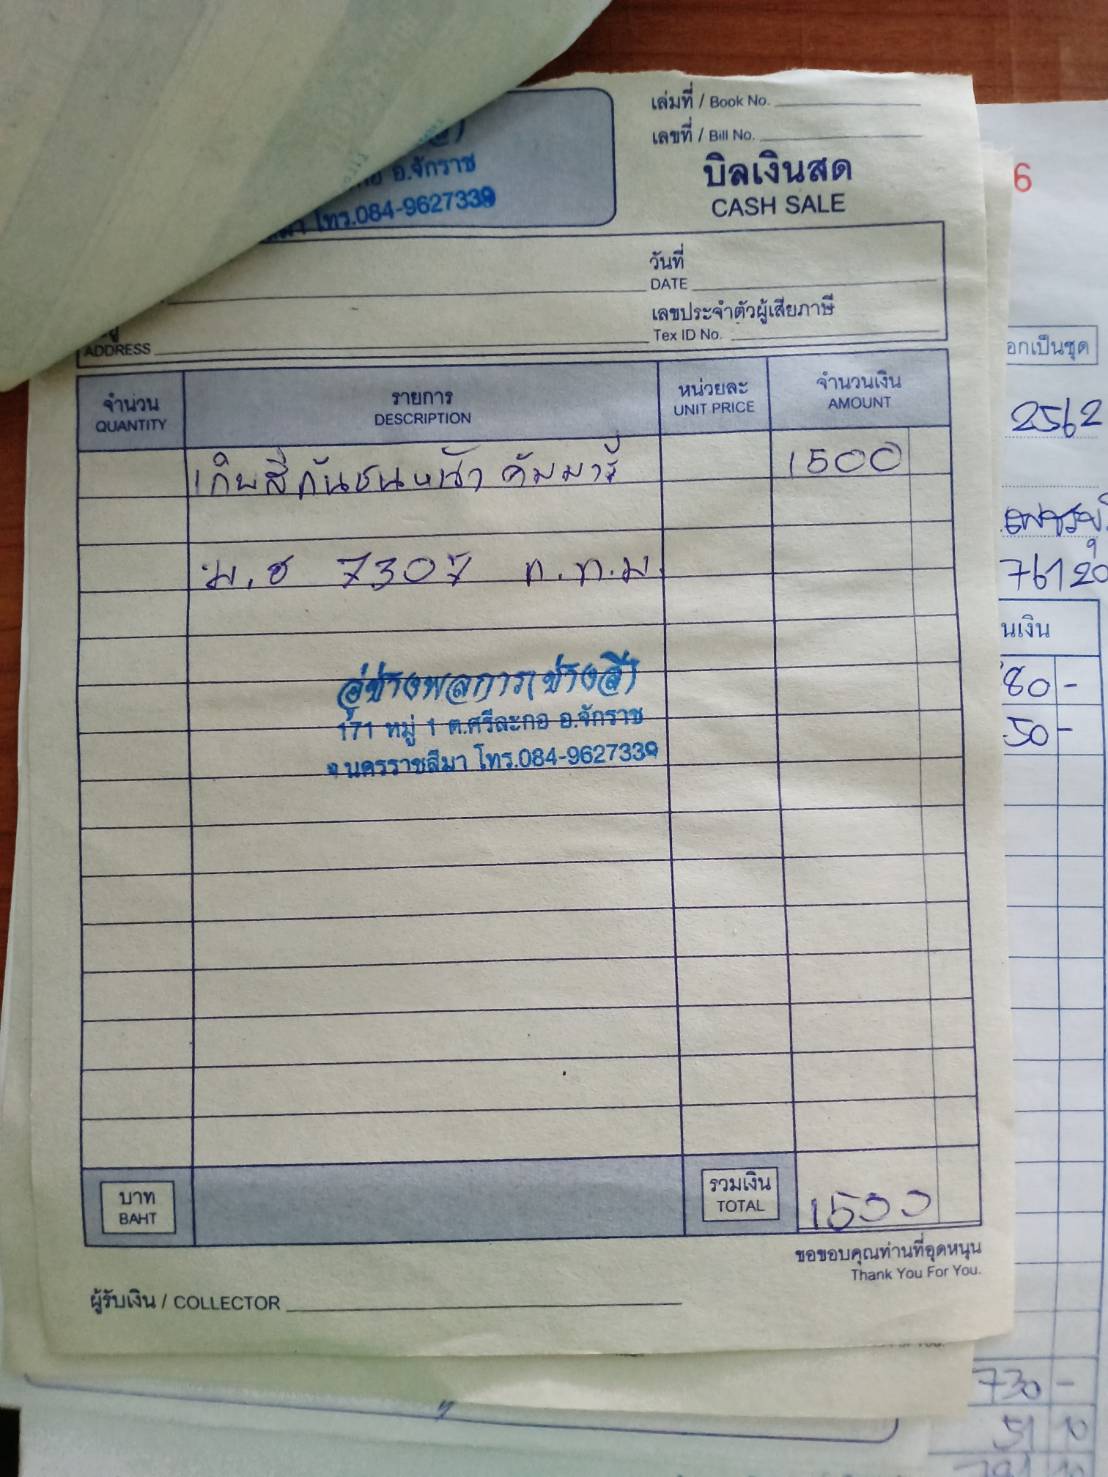 เล่มที่ / Book No.
เลขที่ / Bill No.
บิลเงินสด
CASH SALE
อ.จักราช
โทร.084-9627339
วันที่
DATE
เลขประจำตัวผู้เสียภาษี
Tex ID No.
ADDRESS
จำนวน
QUANTITY
รายการ
DESCRIPTION
หน่วยละ
UNIT PRICE
จำนวนเงิน
AMOUNT
เก็บสีกันชนหน้า คัมมารี่ 1500
ม.ช 7307 ก.ท.ม.
อู่ช่างพลการ(ช่างสี)
171 หมู่ 1 ต.ศรีละกอ อ.จักราช
จ.นครราชสีมา โทร.084-9627339
บาท
BAHT
รวมเงิน
TOTAL
1500
ขอขอบคุณท่านที่อุดหนุน
Thank You For You.
ผู้รับเงิน / COLLECTOR
6
อกเป็นชุด
2562
76120
นเงิน
80 -
50 -
730 -
51 10